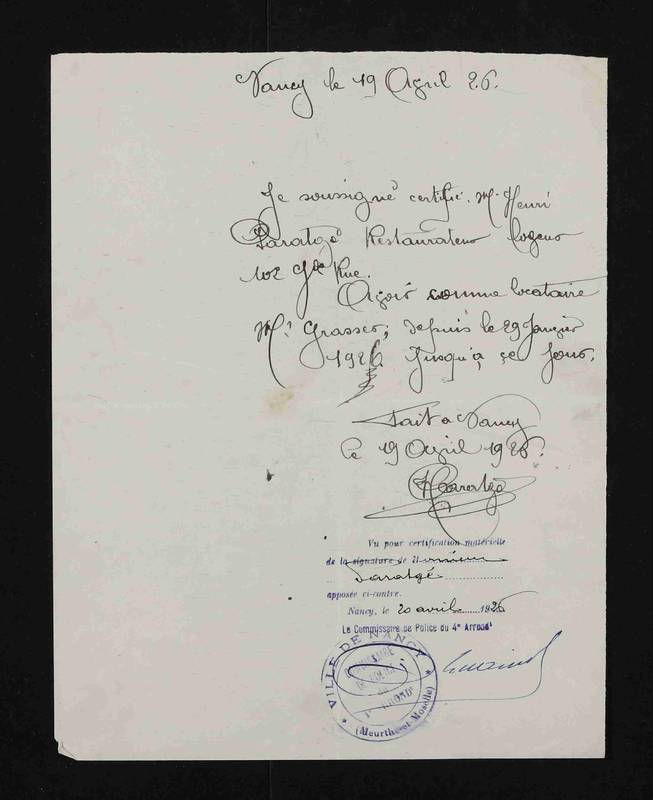 Nancy le 19 Avril 26.
Je soussigné certifie. Mr Henri
Paratgé Restaurateur logeur
102 Gde Rue.
Avoir comme locataire
Mr Grasser, depuis le 29 Janvier
1926 Jusqu'à ce jour.
Fait a Nancy
le 19 Avril 1926.
HParatgé
Vu pour certification matérielle
de la signature de Monsieur
Paratgé
apposée ci-contre.
Nancy, le 20 avril 1926
Le Commissaire de Police du 4e Arrondt
VILLE DE NANCY
COMMISSAIRE
DE POLICE
du
(Meurthe-et-Moselle)